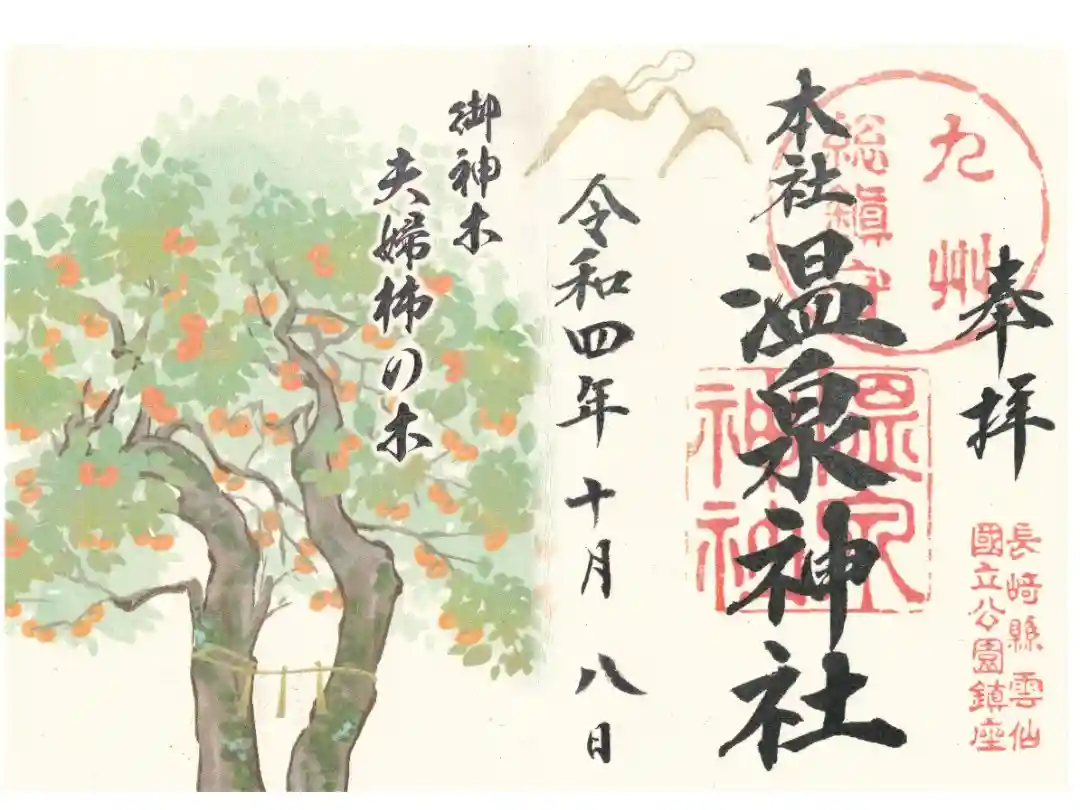 奉拝
九州
総鎮守
長崎縣雲仙
國立公園鎮座
本社 温泉神社
温泉
神社
令和四年十月八日
御神木
夫婦柿の木